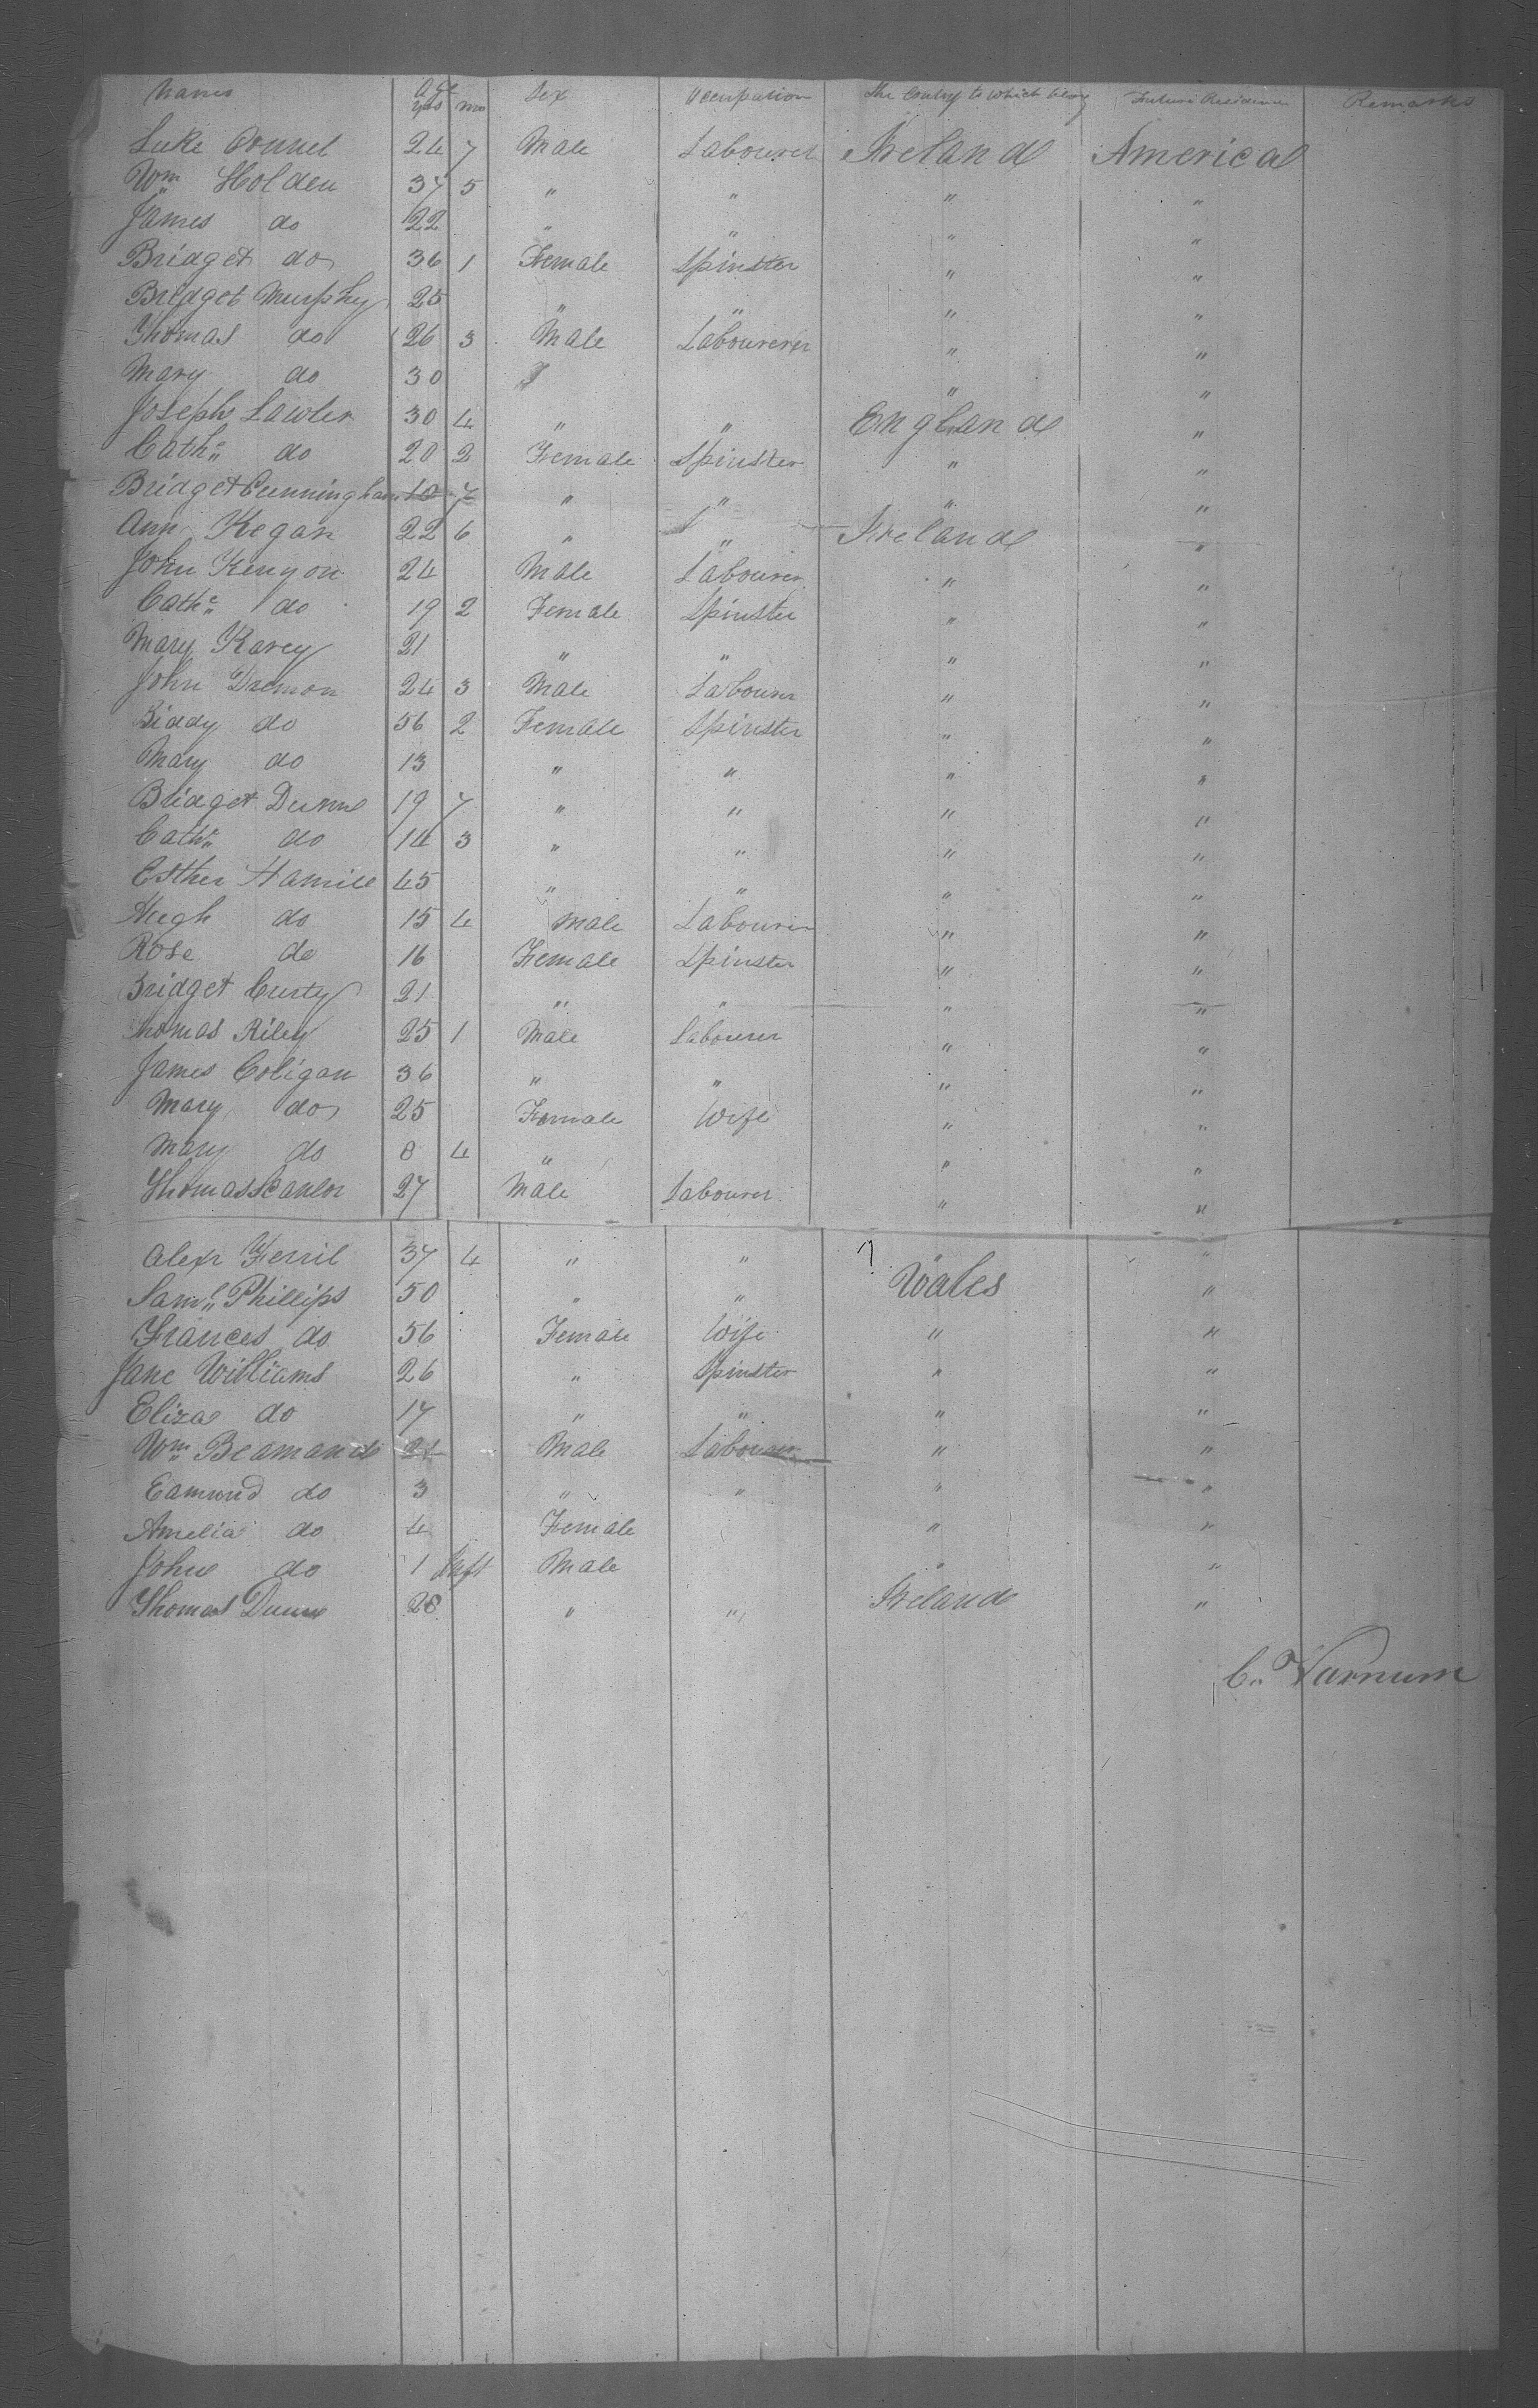 Names Age yrs mo Sex Occupation The Contry to which belong Future Residence Remarks
Luke Connel 24 7 Male Labourer Ireland America
Wm Holden 37 5 " " " "
James do 22 " " " "
Bridget do 36 1 Female Spinster " "
Bridget Murphy 25 " " " "
Thomas do 26 3 Male Labourerer " "
Mary do 30 " "
Joseph Lawler 30 4 " " England "
Cathe do 20 2 Female Spinster " "
Bridget Cunningham 10 7 " " " "
Ann Kegan 22 6 " " Ireland "
John Kenyon 24 Male Labourer " "
Cathe do 19 2 Female Spinster " "
Mary Karey 21 " " " "
John Dremon 24 3 Male Labourer " "
Biddy do 56 2 Female Spinster " "
Mary do 13 " " " "
Bridget Dunne 19 7 " " " "
Cathe do 14 3 " " " "
Esther Hamill 45 " " " "
Hugh do 15 4 Male Labourer " "
Rose do 16 Female Spinster " "
Bridget Curty 21 " " " "
Thomas Riley 25 1 Male Labourer " "
James Coligan 36 " " " "
Mary do 25 Female Wife " "
Mary do 8 4 " " "
Thomas Scanlon 27 Male Labourer " "
Alexr Ferril 37 4 " " " "
Saml Phillips 50 " " Wales "
Frances do 56 Female Wife " "
Jane Williams 26 " Spinster " "
Eliza do 17 " " " "
Wm Beamand 21 Male Labourer " "
Edmund do 3 " " " "
Amelia do 4 Female " "
John do 1 Inft Male " "
Thomas Dunn 28 " " Ireland "
C. Varnum